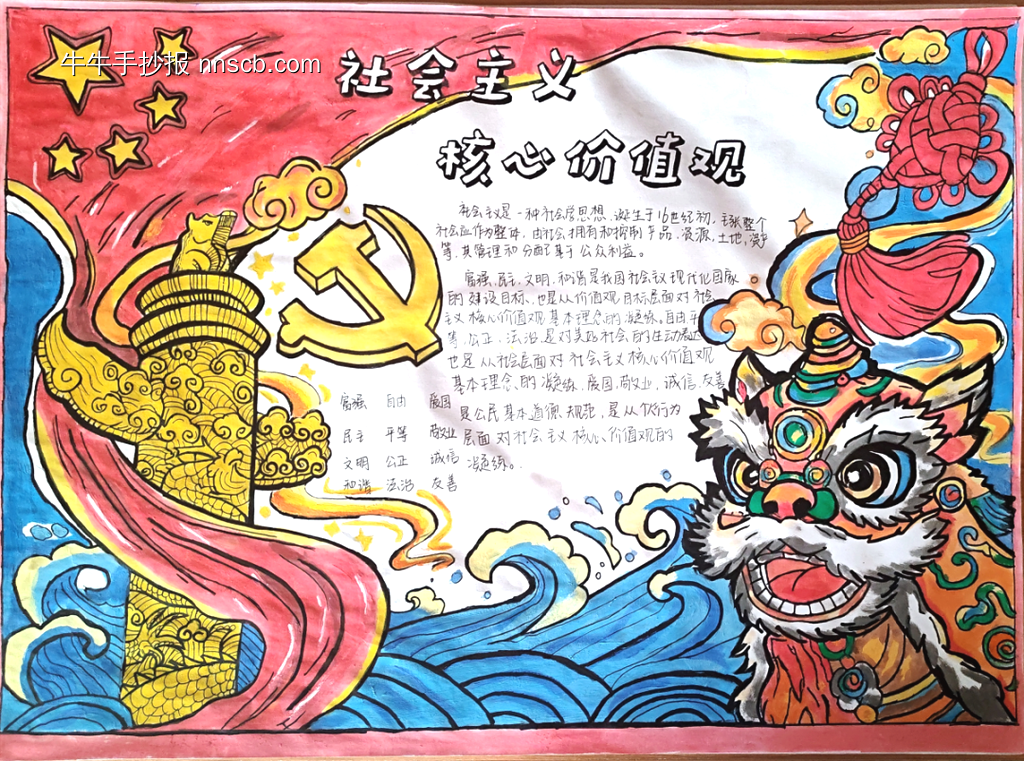 牛牛手抄报 nnscb.com
社会主义
核心价值观
社会主义是一种社会学思想,诞生于16世纪初,主张整个
社会应作为整体,由社会拥有和控制产品、资源,土地,资产
等,其管理和分配基于公众利益。
富强、民主、文明、和谐是我国社会主义现代化国家
的建设目标、也是从价值观目标层面对社会
主义核心价值观基本理念的凝练。自由平
等,公正,法治,是对美好社会的生动展述
也是从社会层面对社会主义核心价值观
基本理念的凝练、爱国,敬业,诚信,友善
是公民基本道德规范,是从个人行为
层面对社会主义核心价值观的
凝练。
富强 自由 爱国
民主 平等 敬业
文明 公正 诚信
和谐 法治 友善